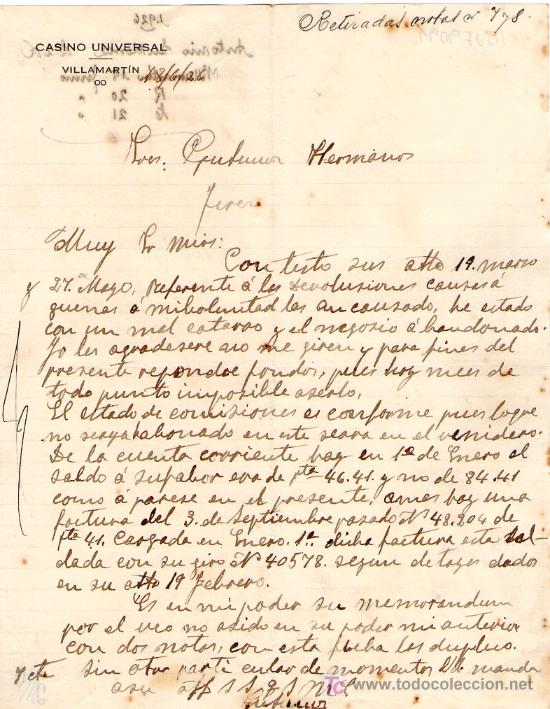 Retiradas notas nº 778
1926
CASINO UNIVERSAL
VILLAMARTÍN
18/6/26
20
21
Sres: Hermanos
Jerez
Muy Sr mios:
Contesto sus atto 19. marso
y 27. Mayo, referente á las devolusiones causas á
genas á miboluntad les an causado, he estado
con un mal catarro y el negosio á bandonado.
Yo les agradesere no me giren y para fines del
presente repondre fondos, pues hoy mees de
todo punto imposible aserlo.
El estado de comisiones es conforme pues loque
no seayabonado en este seara en el venidero.
De la cuenta corriente hay en 1º de Enero el
saldo á sufabor era de pta 46.41. y no de 84.41
como á parese en el presente, ames hay una
factura del 3. de Septiembre pasado Nº 48.204 de
pta 41. Cargada en Enero. 1º dicha factura esta sal
dada con su giro Nº 40578. segun detayes dados
en su atto 19 febrero.
Es en mi poder su memorandum
por el veo no asido en su poder mi anterior
con dos notas, con esta fecha las duplico.
sin otra parti cular de momentos Ldo manda
asu aff S S q S M E
www.todocoleccion.net